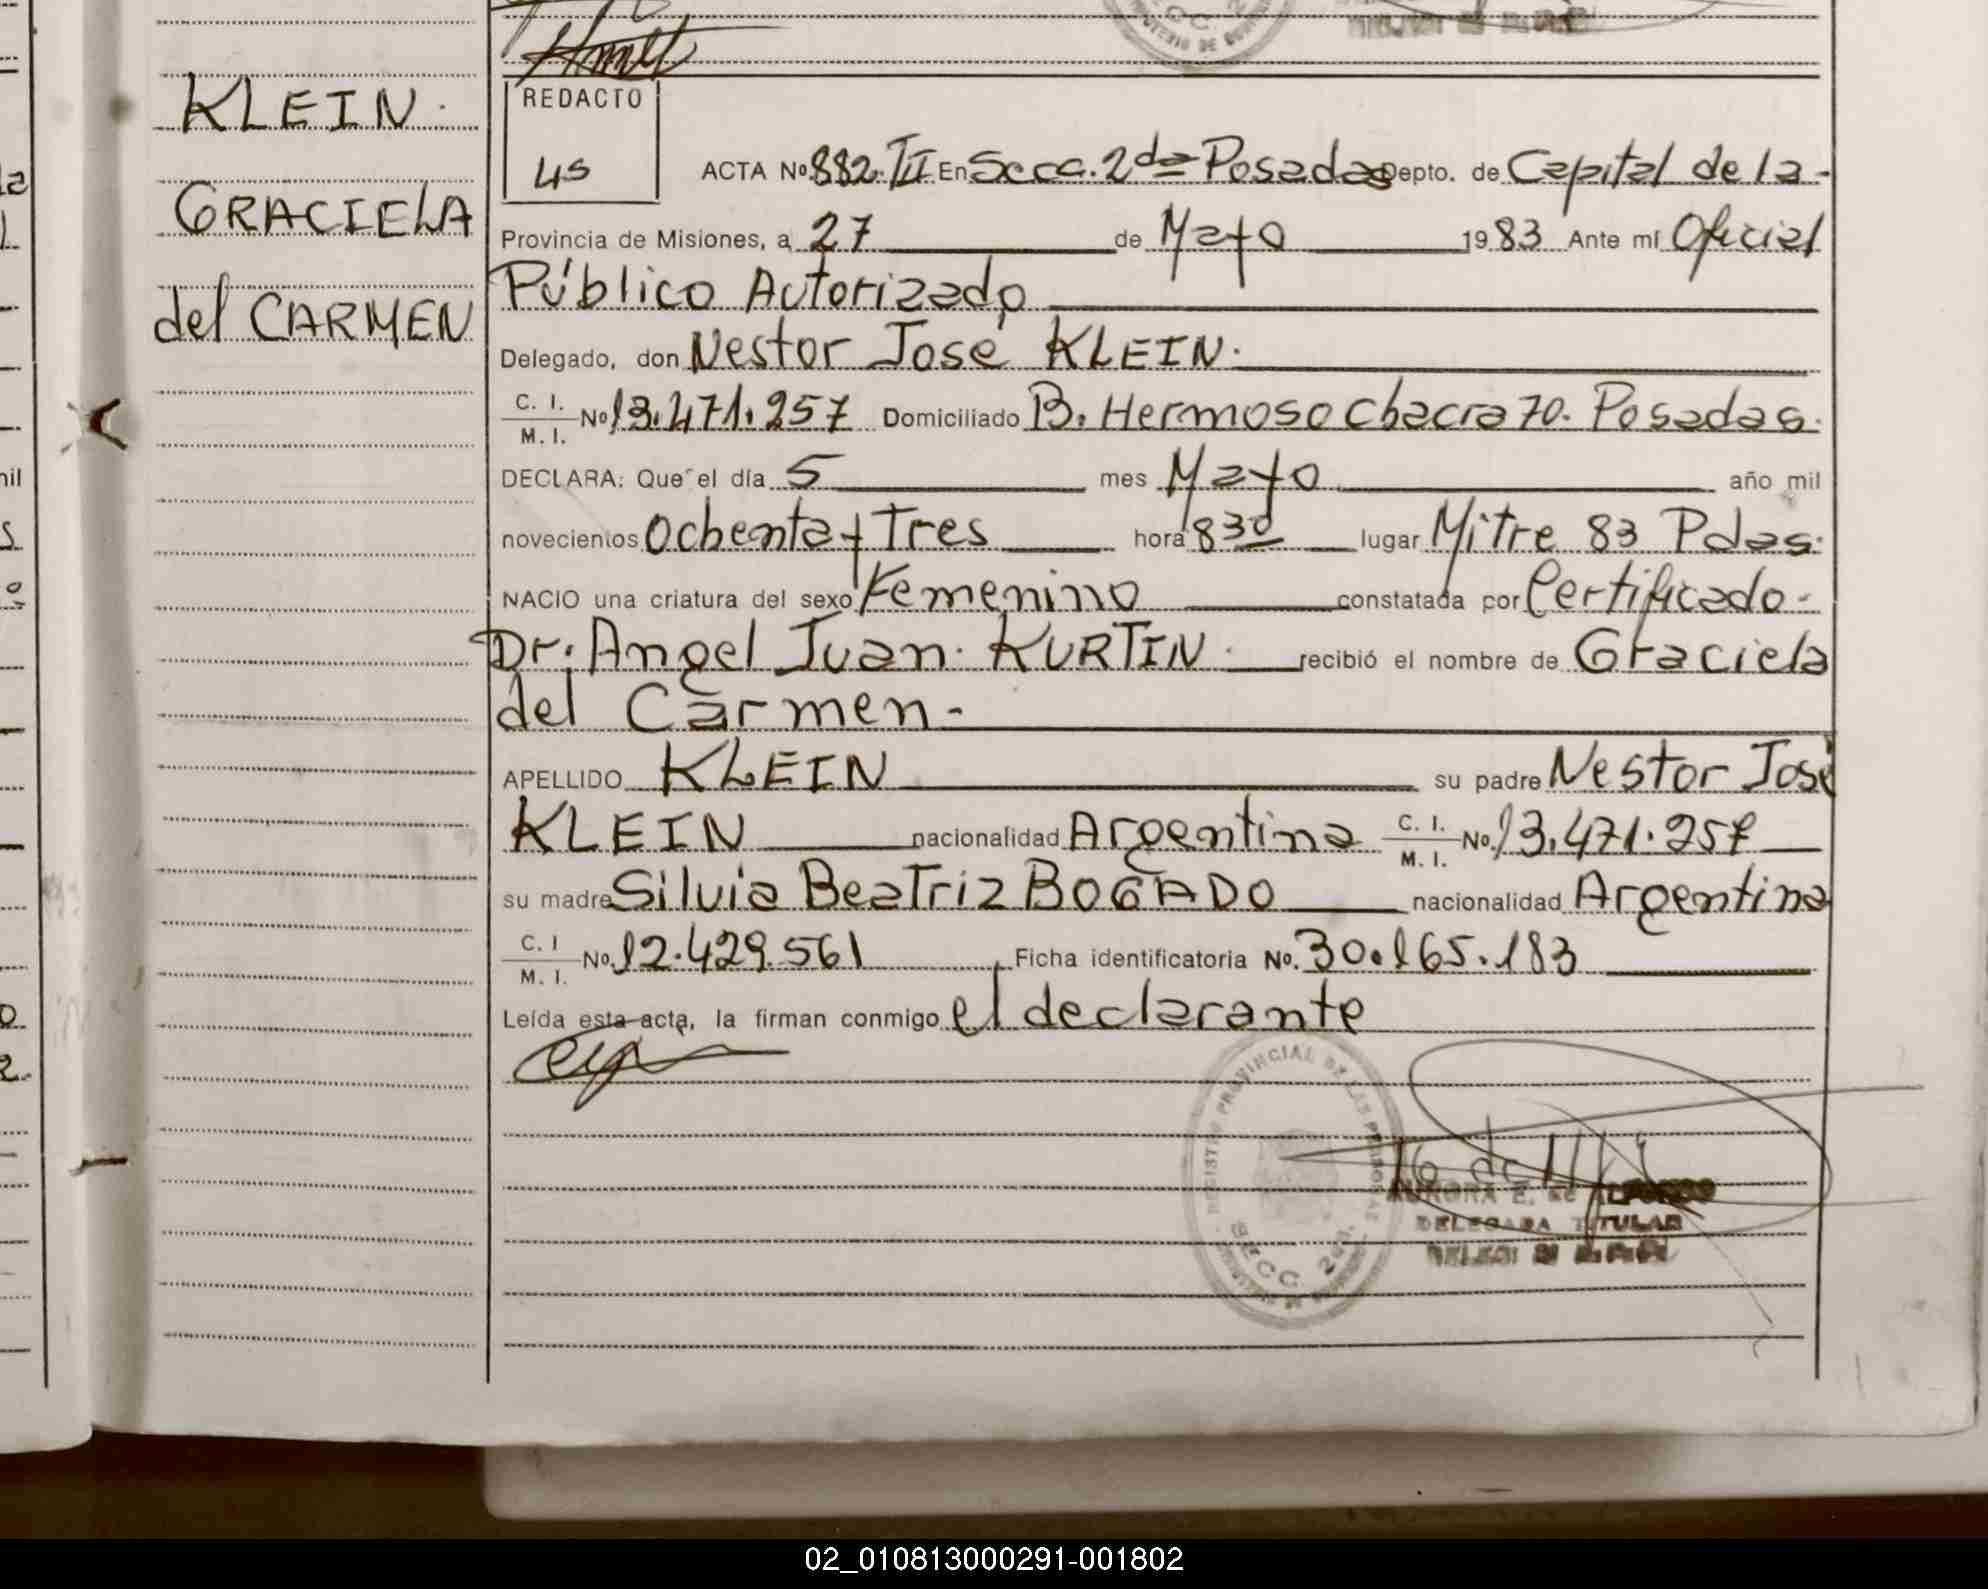 KLEIN.
GRACIELA
del CARMEN
REDACTO
45
ACTA Nº 882. II En Secc. 2da Posadas Depto. de Capital de la -
Provincia de Misiones, a 27 de Mayo 1983 Ante mí Oficial
Público Autorizado
Delegado, don Nestor José KLEIN.
C. I. / M. I. Nº 13.471.257 Domiciliado B. Hermoso Chacra 70. Posadas.
DECLARA: Que el día 5 mes Mayo año mil
novecientos Ochenta y Tres hora 8 30 lugar Mitre 83 Pdas.
NACIO una criatura del sexo Femenino constatada por Certificado -
Dr. Angel Juan. KURTIN. recibió el nombre de Graciela
del Carmen -
APELLIDO KLEIN su padre Nestor José
KLEIN nacionalidad Argentina C. I. / M. I. No. 13.471.257
su madre Silvia Beatriz BOGADO nacionalidad Argentina
C. I / M. I. Nº 12.429.561 Ficha identificatoria No. 30.165.183
Leída esta acta, la firman conmigo el declarante
REGISTRO PROVINCIAL DE LAS PERSONAS
SECC. 2da.
AURORA E. de
DELEGADA TITULAR
02_010813000291-001802